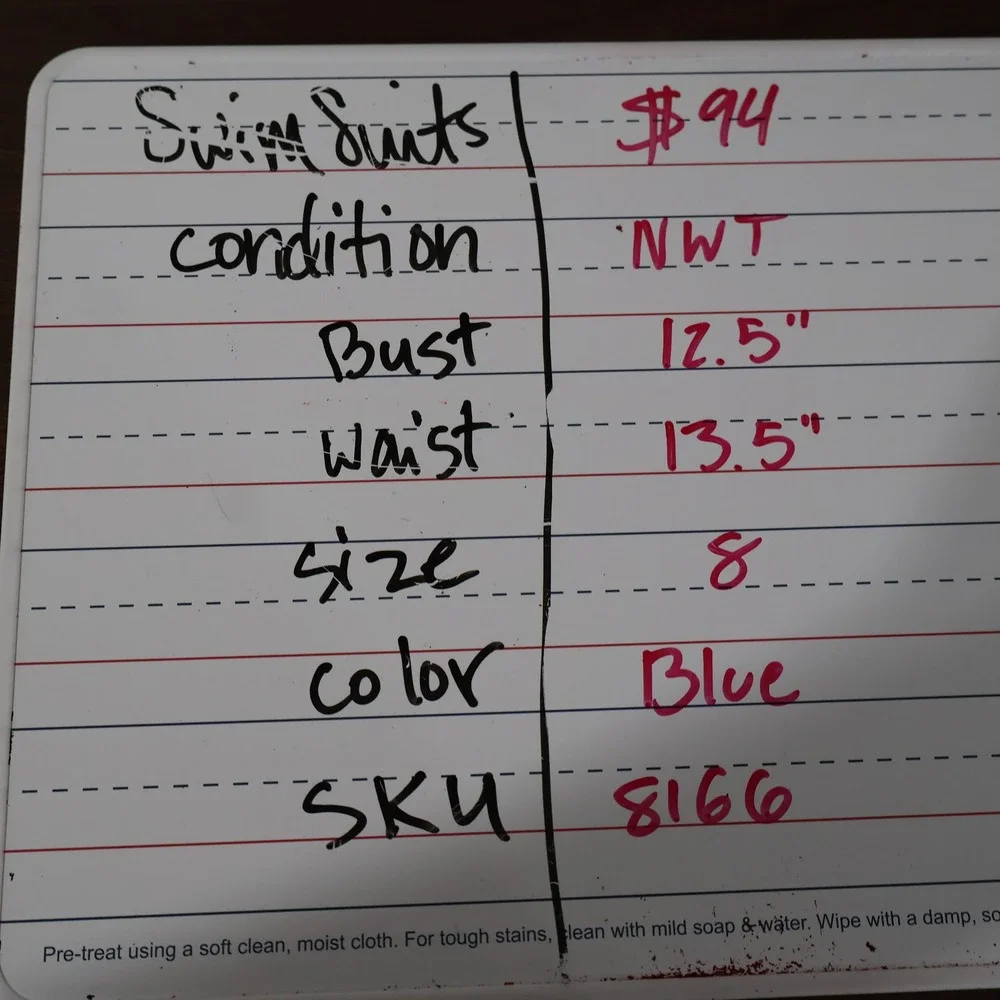 Swim Suits $94
condition NWT
Bust 12.5"
waist 13.5"
size 8
color Blue
SKU 8166
Pre-treat using a soft clean, moist cloth. For tough stains, clean with mild soap & water. Wipe with a damp, so